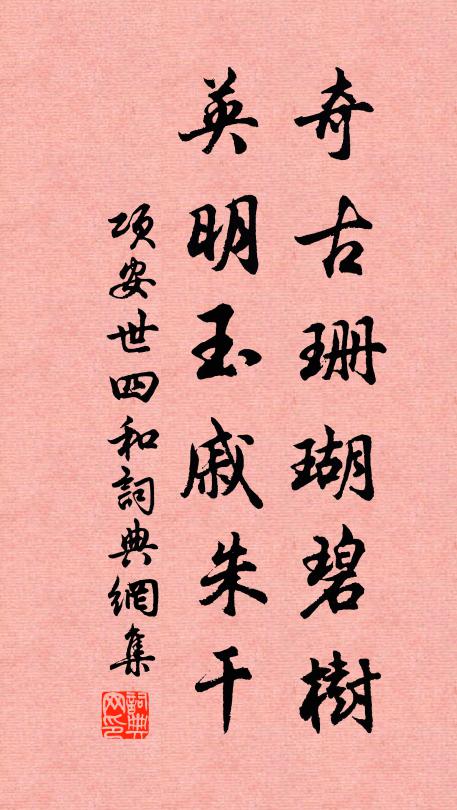 奇古珊瑚碧樹
英明玉戚朱干
項安世四和詞典網集
詞典网印